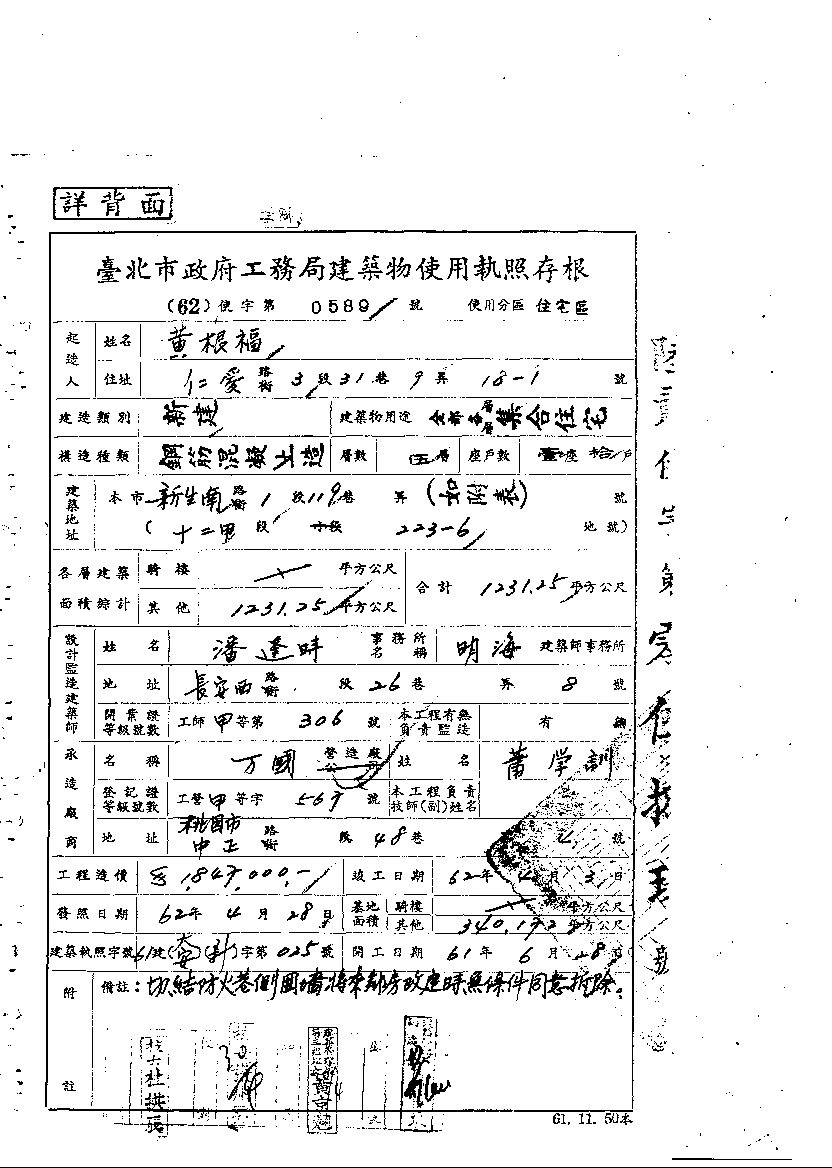 詳背面
臺北市政府工務局建築物使用執照存根
(62)使字第 0589 號 使用分區 住宅區
起造人 姓名 黃根福
住址 仁愛路街 3段31巷 9弄 18-1 號
建造類別 新建 建築物用途 全部各層集合住宅
構造種類 鋼筋混凝土造 層數 伍層 座戶數 壹座拾戶
建築地址 本市新生南路街 1段119巷 弄 (如附表) 號
(十二甲段 小段 223-6 地號)
各層建築面積綜計 騎樓 平方公尺 合計 1231.25平方公尺
其他 1231.25平方公尺
設計監造建築師 姓名 潘逢時 事務所名稱 明海 建築師事務所
地址 長安西路街 段26巷 弄 8 號
開業證等級號數 工師甲等第 306 號 本工程有無負責監造 有
承造廠商 名稱 万國營造廠公司 姓名 蕭学訓
登記證等級號數 工營甲等字 號 本工程負責技師(副)姓名
地址 桃園市中正路街 段48巷 號
工程造價 竣工日期 62年 4月 3日
發照日期 62年 4月 28日 基地面積 騎樓 平方公尺
其他 340.192平方公尺
建築執照字號61建(大安)( )字第025號 開工日期 61年 6月 28日
附註 備註:切結防火巷側圍墻將來鄰房改建時無條件同意拆除。
61.11.50本